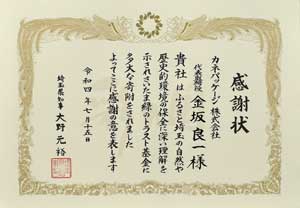 感謝状
カネパッケージ株式会社
代表取締役 金坂良一様
貴社はふるさと埼玉の自然や
歴史的環境の保全に深い理解を
示されさいたま緑のトラスト基金に
多大な寄附をされました
よってここに感謝の意を表します
令和四年七月十五日
埼玉県知事 大野元裕